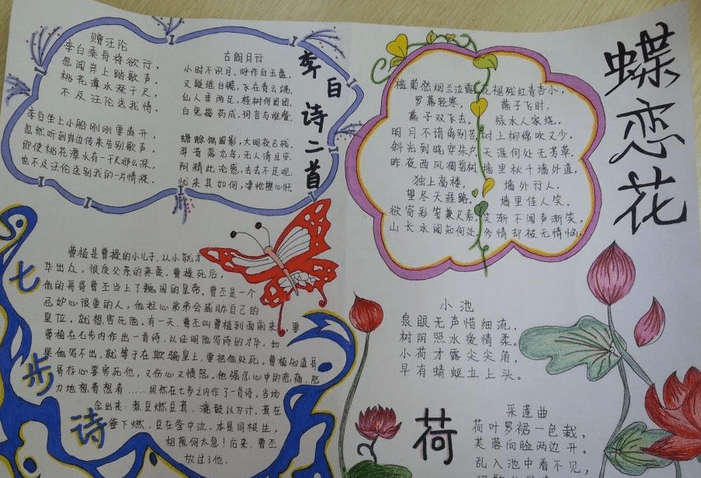 赠汪伦
李白乘舟将欲行，
忽闻岸上踏歌声。
桃花潭水深千尺，
不及汪伦送我情。
李白坐上小船刚刚要离开，
忽然听到岸边传来告别歌声。
即使桃花潭水有一千尺那么深，
也不及汪伦送别我的一片情深。
古朗月行
小时不识月，呼作白玉盘。
又疑瑶台镜，飞在青云端。
仙人垂两足，桂树何团团。
白兔捣药成，问言与谁餐。
蟾蜍蚀圆影，大明夜已残。
羿昔落九乌，天人清且安。
阴精此沦惑，去去不足观。
忧来其如何，凄怆摧心肝
李白诗二首
蝶恋花
槛菊愁烟兰泣露
罗幕轻寒，
燕子双飞去。
明月不谙离别苦
斜光到晓穿朱户
昨夜西风凋碧树
独上高楼，
望尽天涯路。
欲寄彩笺兼尺素
山长水阔知何处
花褪残红青杏小，
燕子飞时，
绿水人家绕。
枝上柳绵吹又少，
天涯何处无芳草。
墙里秋千墙外道，
墙外行人，
墙里佳人笑。
笑渐不闻声渐笑，
多情却被无情恼
七步诗
曹植是曹操的小儿子，从小就才
华出众，很受父亲的亲爱。曹操死后，
他的哥哥曹丕当上了魏国的皇帝。曹丕是一个
忌妒心很重的人，他担心弟弟会威胁自己的
皇位，就想害死他。有一天，曹丕叫曹植到面前来，要
曹植在七步内作出一首诗，以证明他写诗的才华。如
果他写不出，就等于在欺骗皇上，要把他处死。曹植知道哥
哥存心要害死他，又伤心又愤怒。他强忍心中的悲痛，努
力地想着想着……果然在七步之内作了一首诗，当场
念出来：煮豆燃豆萁，漉豉以为汁，萁在
釜下燃，豆在釜中泣，本是同根生，
相煎何太急！后来，曹丕
放过了他。
小池
泉眼无声惜细流，
树阴照水爱情柔。
小荷才露尖尖角，
早有蜻蜓立上头。
荷
采莲曲
荷叶罗裙一色裁，
芙蓉向脸两边开。
乱入池中看不见，